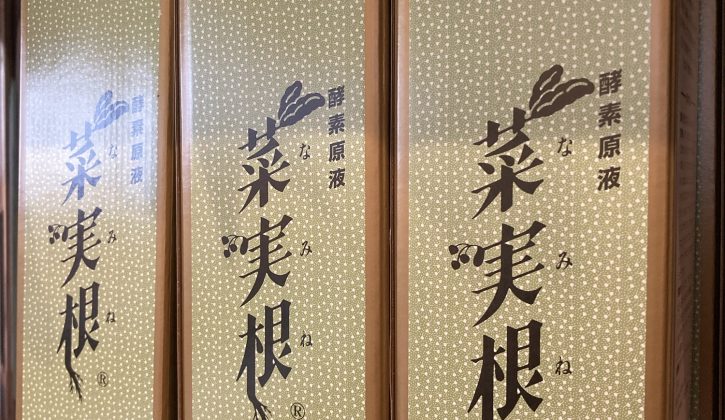 酵素原液
菜実根
なみね
®
酵素原液
菜実根
なみね
®
酵素原液
菜実根
なみね